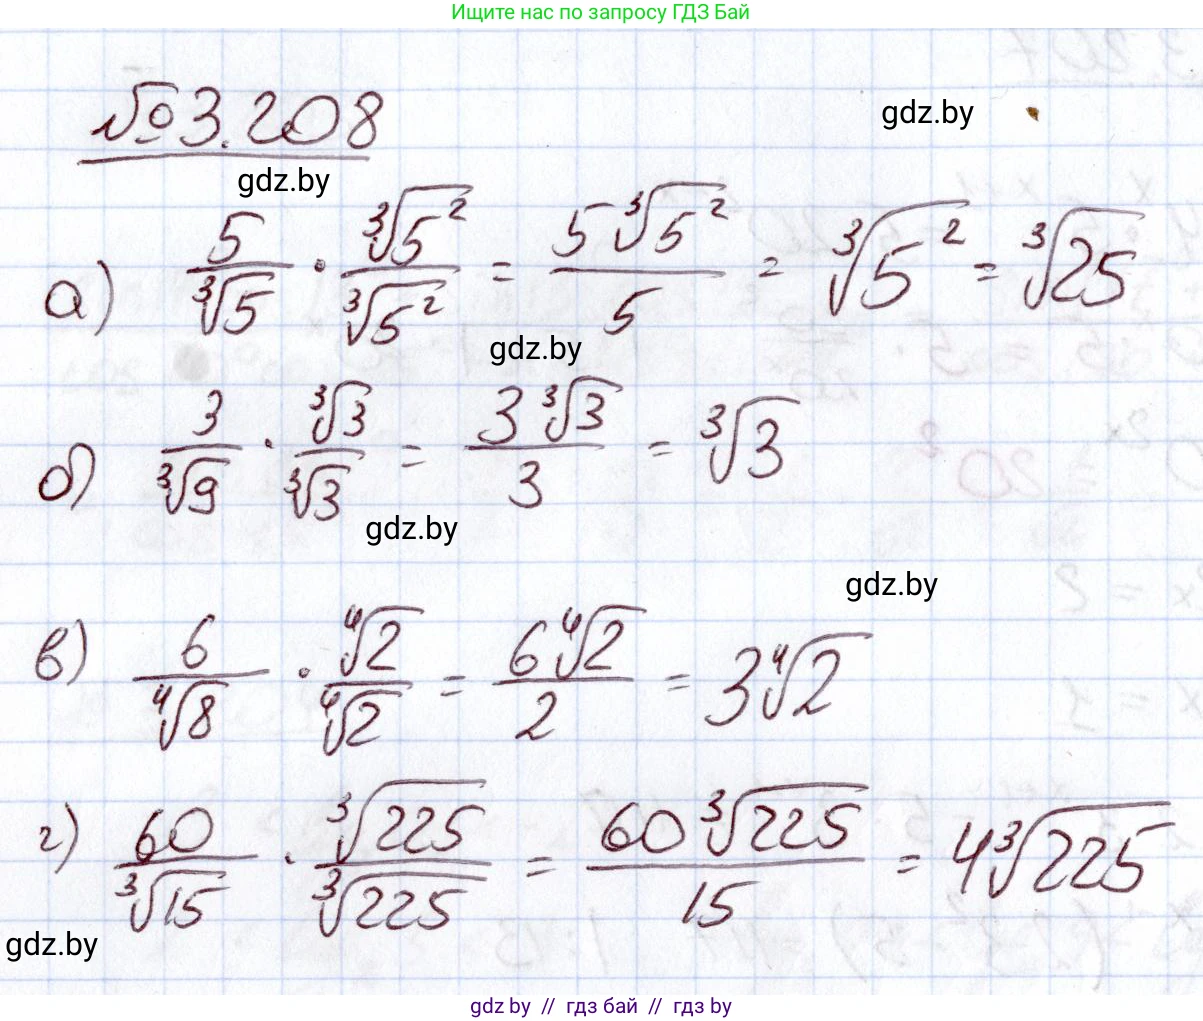 Ищите нас по запросу ГДЗ Бай
№3.208
gdz.by
gdz.by
а) 5/∛5 · ∛5²/∛5² = 5∛5²/5 = ∛5² = ∛25
gdz.by
б) 3/∛9 · ∛3/∛3 = 3∛3/3 = ∛3
gdz.by
gdz.by
в) 6/∜8 · ∜2/∜2 = 6∜2/2 = 3∜2
г) 60/∛15 · ∛225/∛225 = 60∛225/15 = 4∛225
gdz.by
gdz.by // гдз бай // гдз by